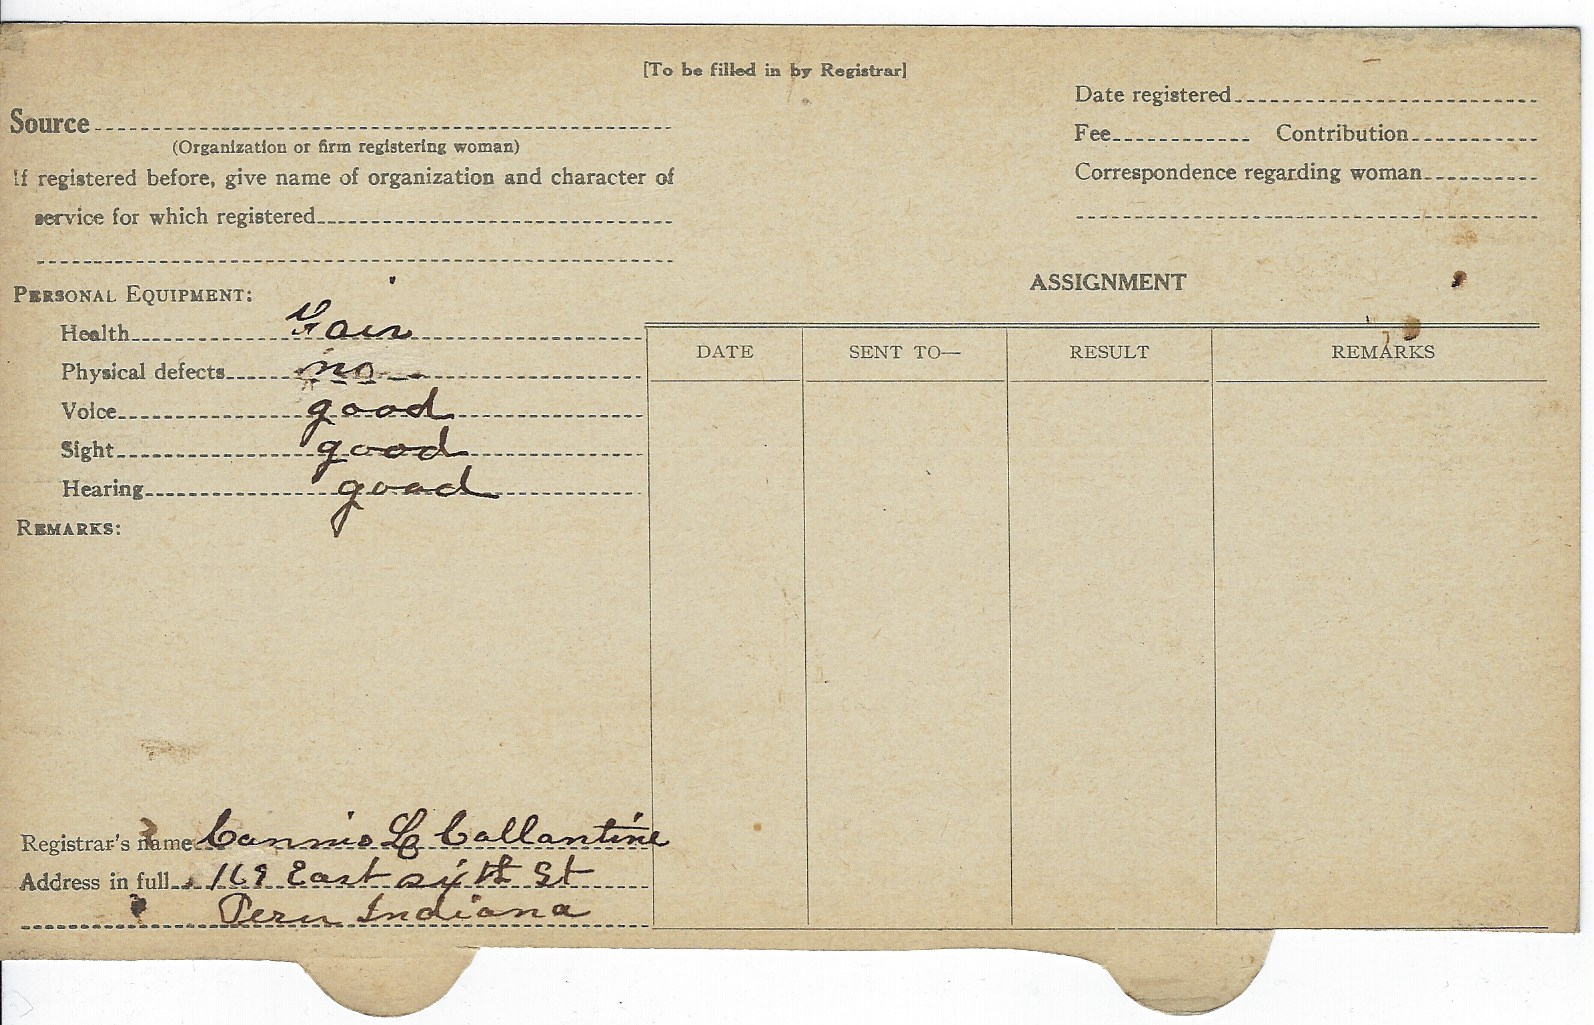 [To be filled in by Registrar]
Date registered
Source
(Organization or firm registering woman)
Fee Contribution
If registered before, give name of organization and character of
Correspondence regarding woman
service for which registered
PERSONAL EQUIPMENT:
Health Fair
Physical defects no
Voice good
Sight good
Hearing good
REMARKS:
ASSIGNMENT
DATE SENT TO— RESULT REMARKS
Registrar's name Cannie L Callantine
Address in full 169 East sixth St
Peru Indiana